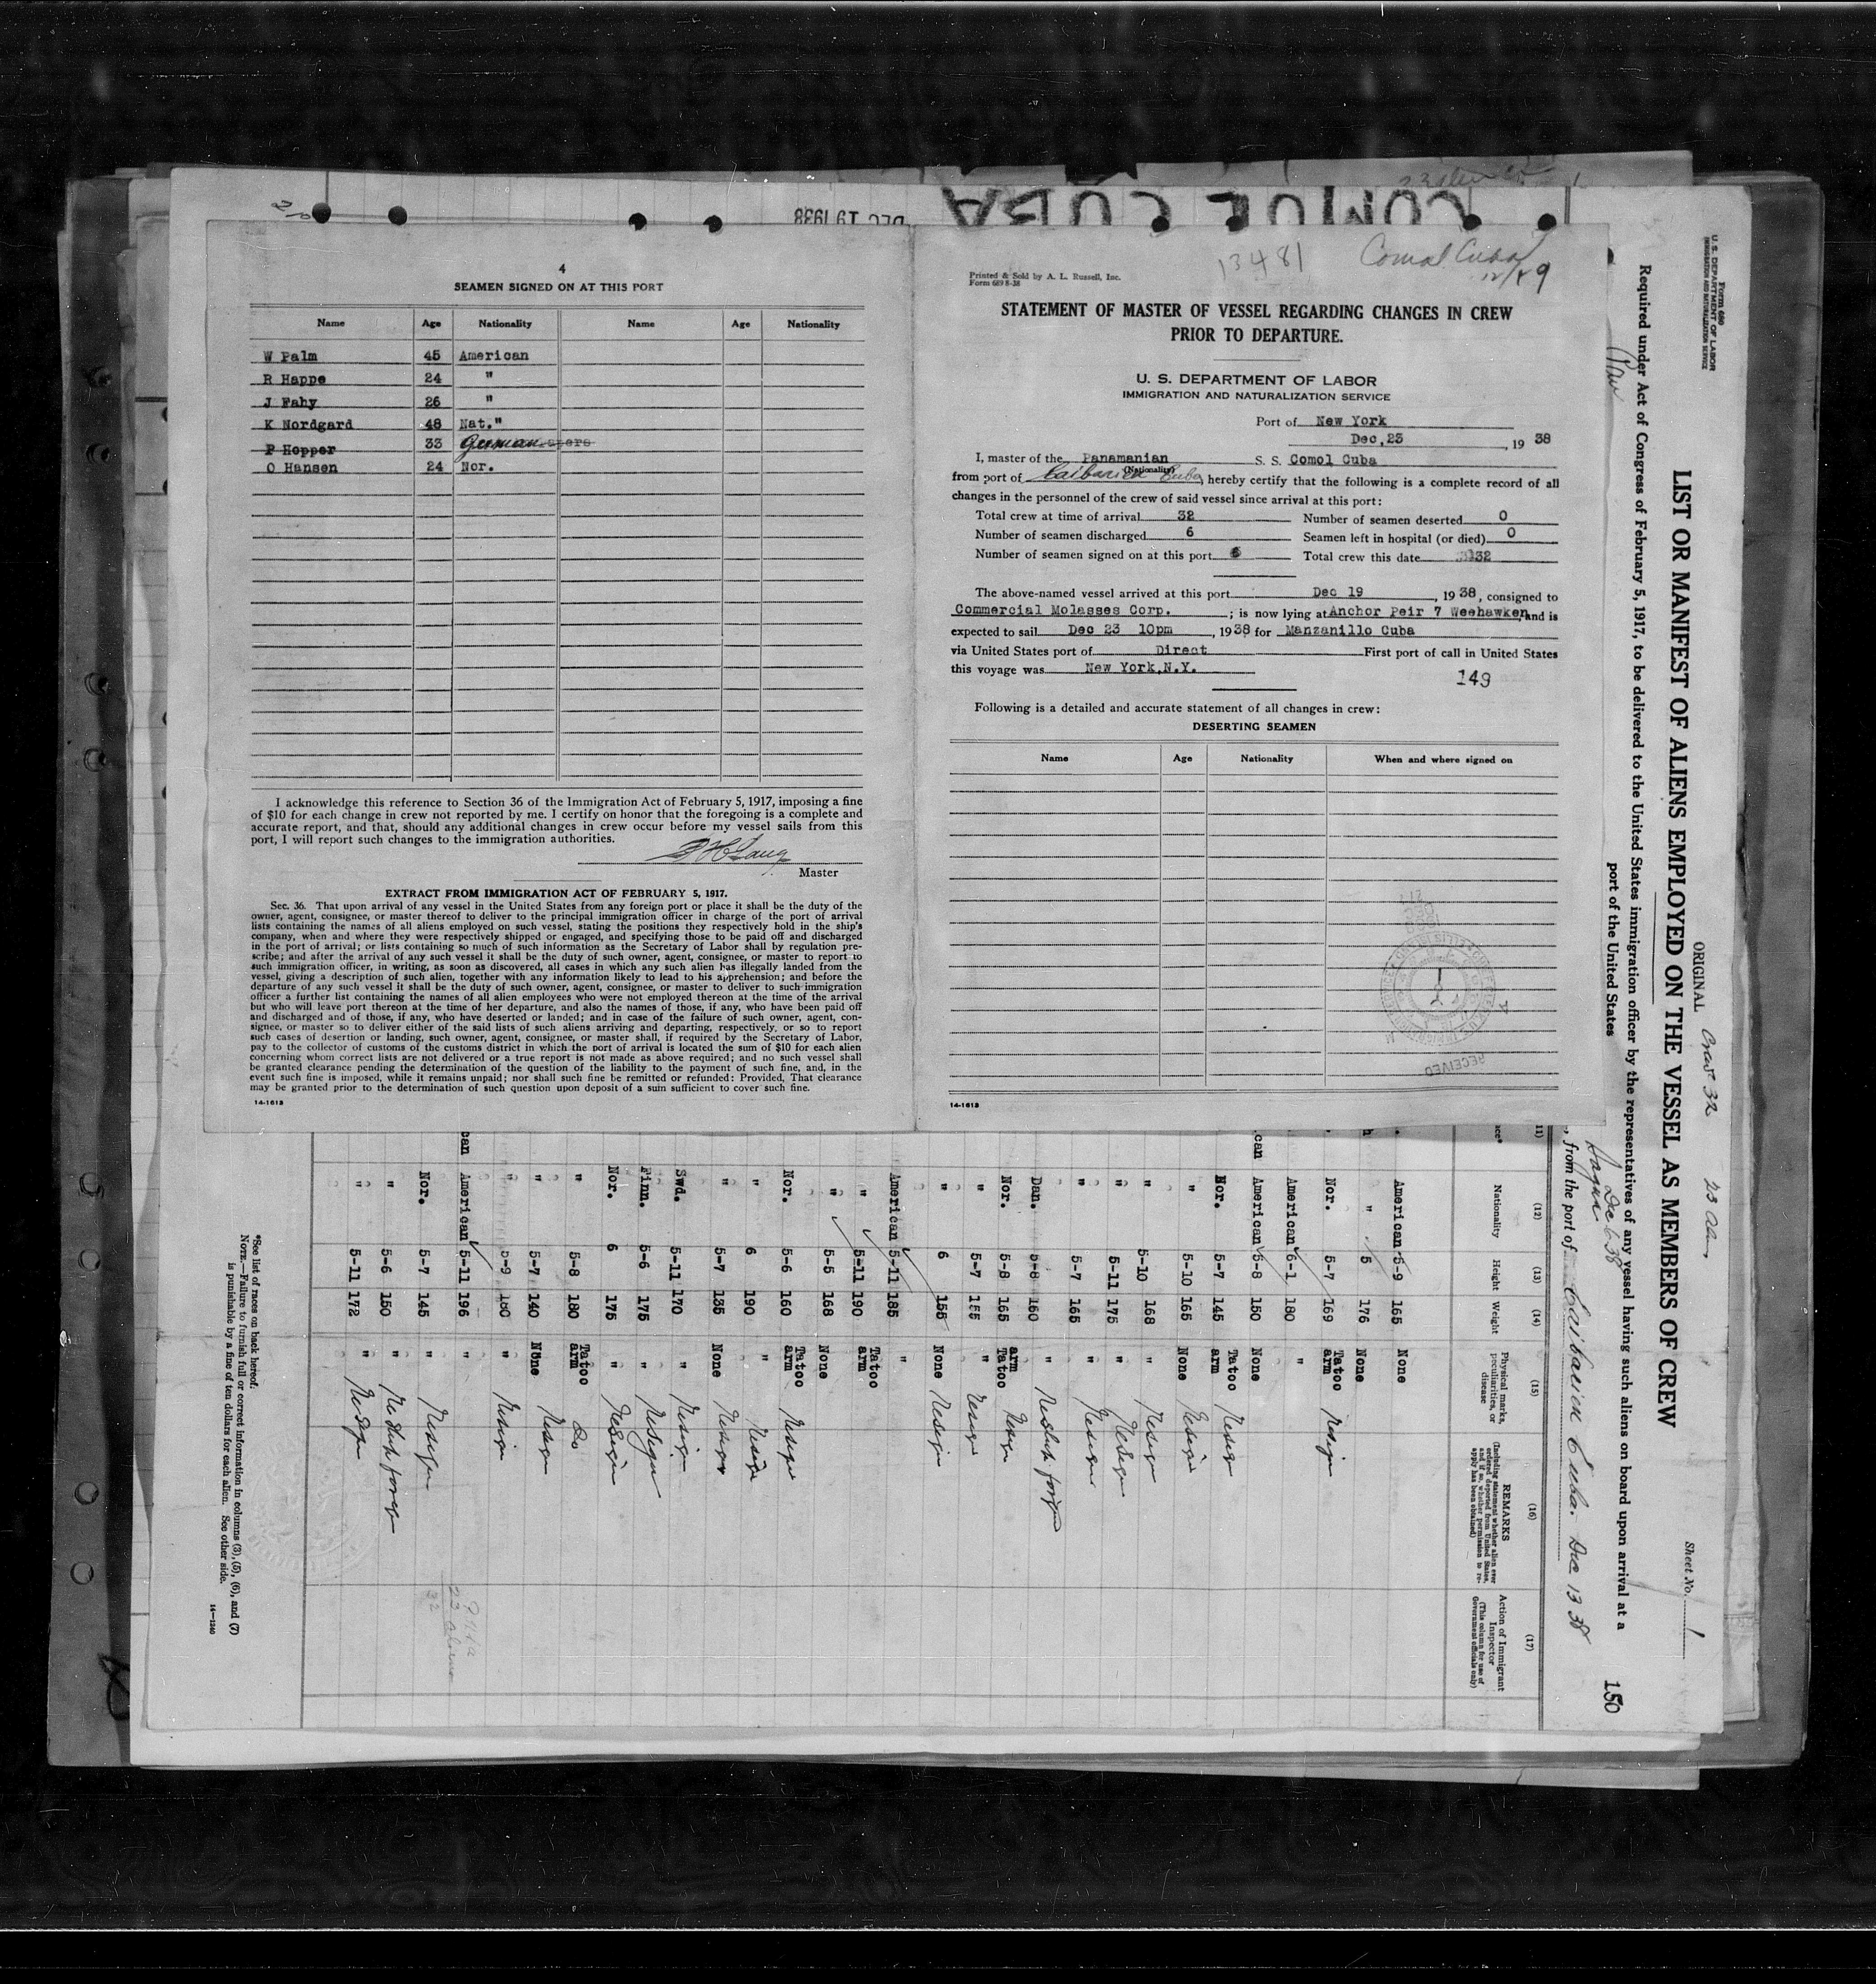 DEC 19 1938
COMOL CUBA
4
SEAMEN SIGNED ON AT THIS PORT
Name Age Nationality Name Age Nationality
W Palm 45 American
R Happe 24 "
J Fahy 26 "
K Nordgard 48 Nat."
P Hopper 33 German
O Hansen 24 Nor.
I acknowledge this reference to Section 36 of the Immigration Act of February 5, 1917, imposing a fine
of $10 for each change in crew not reported by me. I certify on honor that the foregoing is a complete and
accurate report, and that, should any additional changes in crew occur before my vessel sails from this
port, I will report such changes to the immigration authorities.
Master
EXTRACT FROM IMMIGRATION ACT OF FEBRUARY 5, 1917.
Sec. 36. That upon arrival of any vessel in the United States from any foreign port or place it shall be the duty of the
owner, agent, consignee, or master thereof to deliver to the principal immigration officer in charge of the port of arrival
lists containing the names of all aliens employed on such vessel, stating the positions they respectively hold in the ship's
company, when and where they were respectively shipped or engaged, and specifying those to be paid off and discharged
in the port of arrival; or lists containing so much of such information as the Secretary of Labor shall by regulation pre-
scribe; and after the arrival of any such vessel it shall be the duty of such owner, agent, consignee, or master to report to
such immigration officer, in writing, as soon as discovered, all cases in which any such alien has illegally landed from the
vessel, giving a description of such alien, together with any information likely to lead to his apprehension; and before the
departure of any such vessel it shall be the duty of such owner, agent, consignee, or master to deliver to such immigration
officer a further list containing the names of all alien employees who were not employed thereon at the time of the arrival
but who will leave port thereon at the time of her departure, and also the names of those, if any, who have been paid off
and discharged and of those, if any, who have deserted or landed; and in case of the failure of such owner, agent, con-
signee, or master so to deliver either of the said lists of such aliens arriving and departing, respectively, or so to report
such cases of desertion or landing, such owner, agent, consignee, or master shall, if required by the Secretary of Labor,
pay to the collector of customs of the customs district in which the port of arrival is located the sum of $10 for each alien
concerning whom correct lists are not delivered or a true report is not made as above required; and no such vessel shall
be granted clearance pending the determination of the question of the liability to the payment of such fine, and, in the
event such fine is imposed, while it remains unpaid; nor shall such fine be remitted or refunded: Provided, That clearance
may be granted prior to the determination of such question upon deposit of a sum sufficient to cover such fine.
14-1613
13481
Comol Cuba
12/19
Printed & Sold by A. L. Russell, Inc.
Form 689 8-38
STATEMENT OF MASTER OF VESSEL REGARDING CHANGES IN CREW
PRIOR TO DEPARTURE.
U. S. DEPARTMENT OF LABOR
IMMIGRATION AND NATURALIZATION SERVICE
Port of New York
Dec,23, 19 38
I, master of the Panamanian S. S. Comol Cuba
(Nationality)
from port of Caibarien Cuba, hereby certify that the following is a complete record of all
changes in the personnel of the crew of said vessel since arrival at this port:
Total crew at time of arrival 32 Number of seamen deserted 0
Number of seamen discharged 6 Seamen left in hospital (or died) 0
Number of seamen signed on at this port 6 Total crew this date 32
The above-named vessel arrived at this port Dec 19, 19 38, consigned to
Commercial Molasses Corp. ; is now lying at Anchor Peir 7 Weehawken, and is
expected to sail Dec 23 10pm, 19 38 for Manzanillo Cuba
via United States port of Direct First port of call in United States
this voyage was New York,N.Y.
149
Following is a detailed and accurate statement of all changes in crew:
DESERTING SEAMEN
Name Age Nationality When and where signed on
RECEIVED
14-1613
Form 680
U. S. DEPARTMENT OF LABOR
IMMIGRATION AND NATURALIZATION SERVICE
ORIGINAL
Crew 32
23 Alien
Sheet No. 1
LIST OR MANIFEST OF ALIENS EMPLOYED ON THE VESSEL AS MEMBERS OF CREW
Required under Act of Congress of February 5, 1917, to be delivered to the United States immigration officer by the representatives of any vessel having such aliens on board upon arrival at a
port of the United States
150
Sagua Dec 6 38
, from the port of Caibarien Cuba. Dec 13 38
(12) (13) (14) (15) (16) (17)
Nationality Height Weight Physical marks, peculiarities, or disease REMARKS (Including statement whether alien ever ordered deported from United States, and if so, whether permission to re-apply has been obtained) Action of Immigrant Inspector (This column for use of Government officials only)
American 5-9 165 None
" 5 176 None
Nor. 5-7 169 Tatoo arm Resign
American 6-1 180 "
American 5-8 150 None
Nor. 5-7 145 Tatoo arm Resign
" 5-10 165 None Resign
" 5-10 168 " Resign
" 5-11 175 " Resign
" 5-7 165 " Resign
Dan. 5-8 160 " Reship foreign
Nor. 5-8 165 arm Tatoo Resign
" 5-7 155 " Resign
" 6 155 None Resign
American 5-11 185 "
" 5-11 190 Tatoo arm
" 5-5 168 None
Nor. 5-6 160 Tatoo arm Resign
" 6 190 " Resign
" 5-7 135 None Resign
Swd. 5-11 170 " Resign
Finn. 5-6 175 " Resign
Nor. 6 175 " Resign
" 5-8 180 Tatoo arm do
" 5-7 140 None Resign
" 5-9 180 " Resign
American 5-11 196 "
Nor. 5-7 145 " Resign
" 5-6 150 " Reship foreign
" 5-11 172 " Resign
23 Aliens
32
*See list of races on back hereof.
NOTE.—Failure to furnish full or correct information in columns (3), (5), (6), and (7)
is punishable by a fine of ten dollars for each alien. See other side.
14-1240